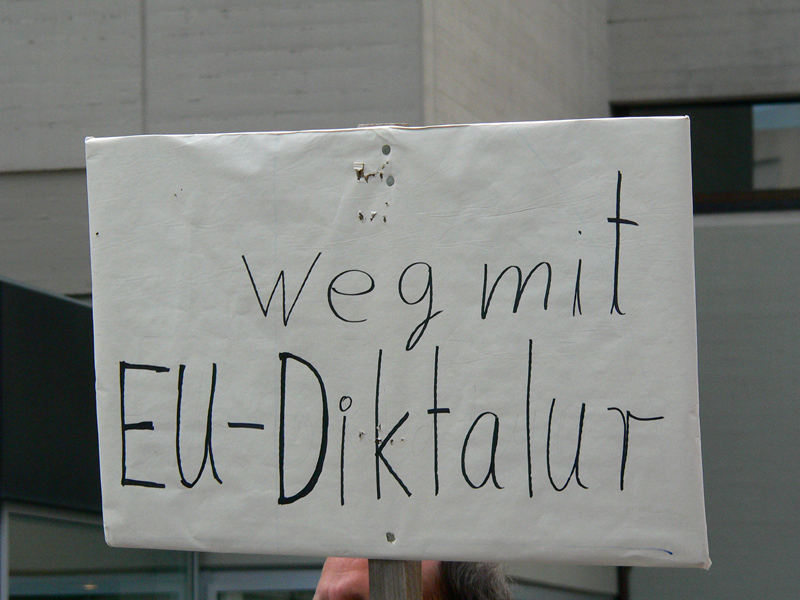 weg mit
EU-Diktalur